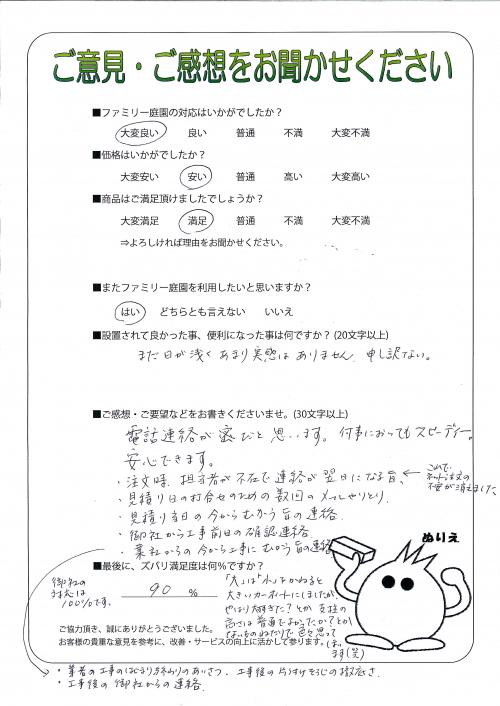 ご意見・ご感想をお聞かせください
■ファミリー庭園の対応はいかがでしたか？
大変良い 良い 普通 不満 大変不満
■価格はいかがでしたか？
大変安い 安い 普通 高い 大変高い
■商品はご満足頂けましたでしょうか？
大変満足 満足 普通 不満 大変不満
⇒よろしければ理由をお聞かせください。
■またファミリー庭園を利用したいと思いますか？
はい どちらとも言えない いいえ
■設置されて良かった事、便利になった事は何ですか？(20文字以上)
まだ日が浅くあまり実感はありません。申し訳ない。
■ご感想・ご要望などをお書きくださいませ。(30文字以上)
電話連絡が密だと思います。何事においてもスピーディー。
安心できます。
・注文時、担当者が不在で連絡が翌日になる旨、
これで、
ネット注文の
不安が消えました。
・見積り日の打合せのための数回のメールやりとり。
・見積り当日の今からむかう旨の連絡。
・御社から工事前日の確認連絡。
・業社からの今から工事にむかう旨の連絡
■最後に、ズバリ満足度は何％ですか？
90 %
御社の
対応は
100%です。
「大」は「小」をかねると
大きいカーポートにしましたが
やはり大きすぎた？とか支柱の
高さは普通でよかったか？とか
色々思って
います(笑)
ぬりえ
ご協力頂き、誠にありがとうございました。
お客様の貴重な意見を参考に、改善・サービスの向上に活かして参ります。
・業者の工事のはじまり終わりのあいさつ、工事後の片づけそうじの徹底さ。
・工事後の御社からの連絡